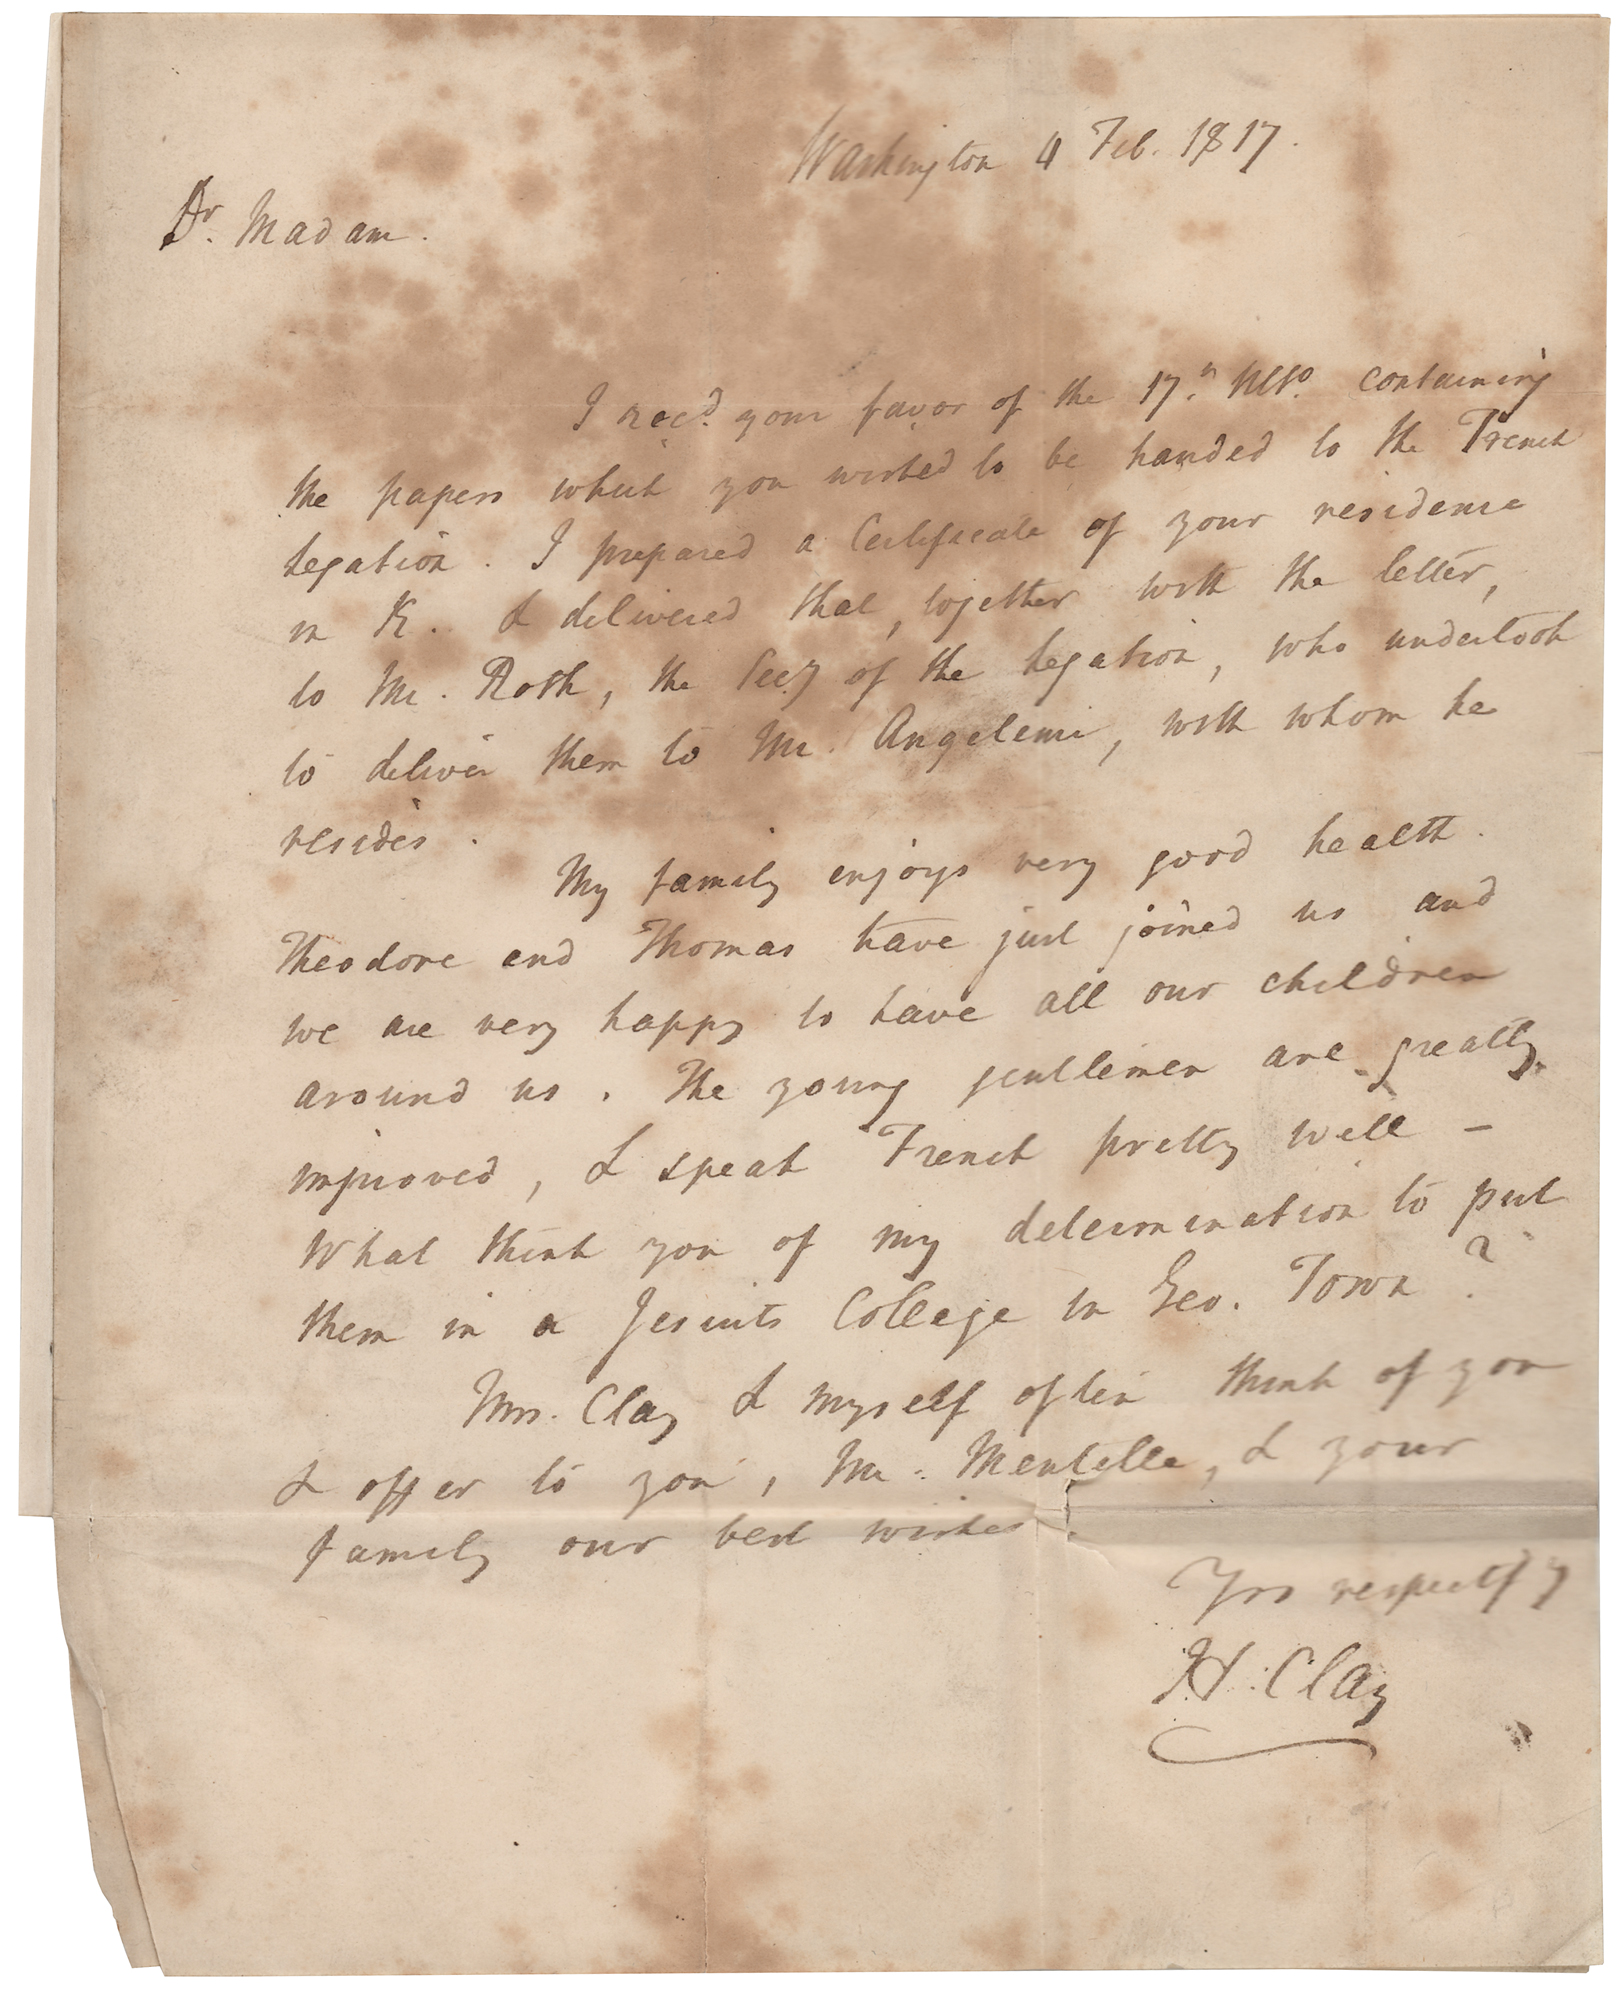 Washington 4 Feb. 1817.
Dr. Madam.
I recd. your favor of the 17th. Ulto. containing
the papers which you wished to be handed to the French
legation. I prepared a Certificate of your residence
in K. & delivered that, together with the letter,
to Mr. Roth, the Secy of the legation, who undertook
to deliver them to Mr. Angelemi, with whom he
resides.
My family enjoys very good health.
Theodore and Thomas have just joined us and
we are very happy to have all our children
around us. The young gentlemen are greatly
improved, & speak French pretty well –
What think you of my determination to put
them in a Jesuits College in Geo. Town?
Mrs. Clay & myself often think of you
& offer to you, Mr. Mentelle, & your
family our best wishes.
Yrs respectfy
H. Clay